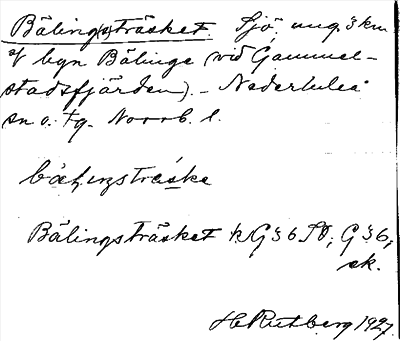 Bälingsträsket. Sjö ung. 3 km
af byn Bälinge (vid Gammel-
stadsfjärden). - Nederluleå
sn o. tg. Norrb. l.
Bälingsträsket k G § 6 SO; G § 6,
sk.
H Rutberg 1927.